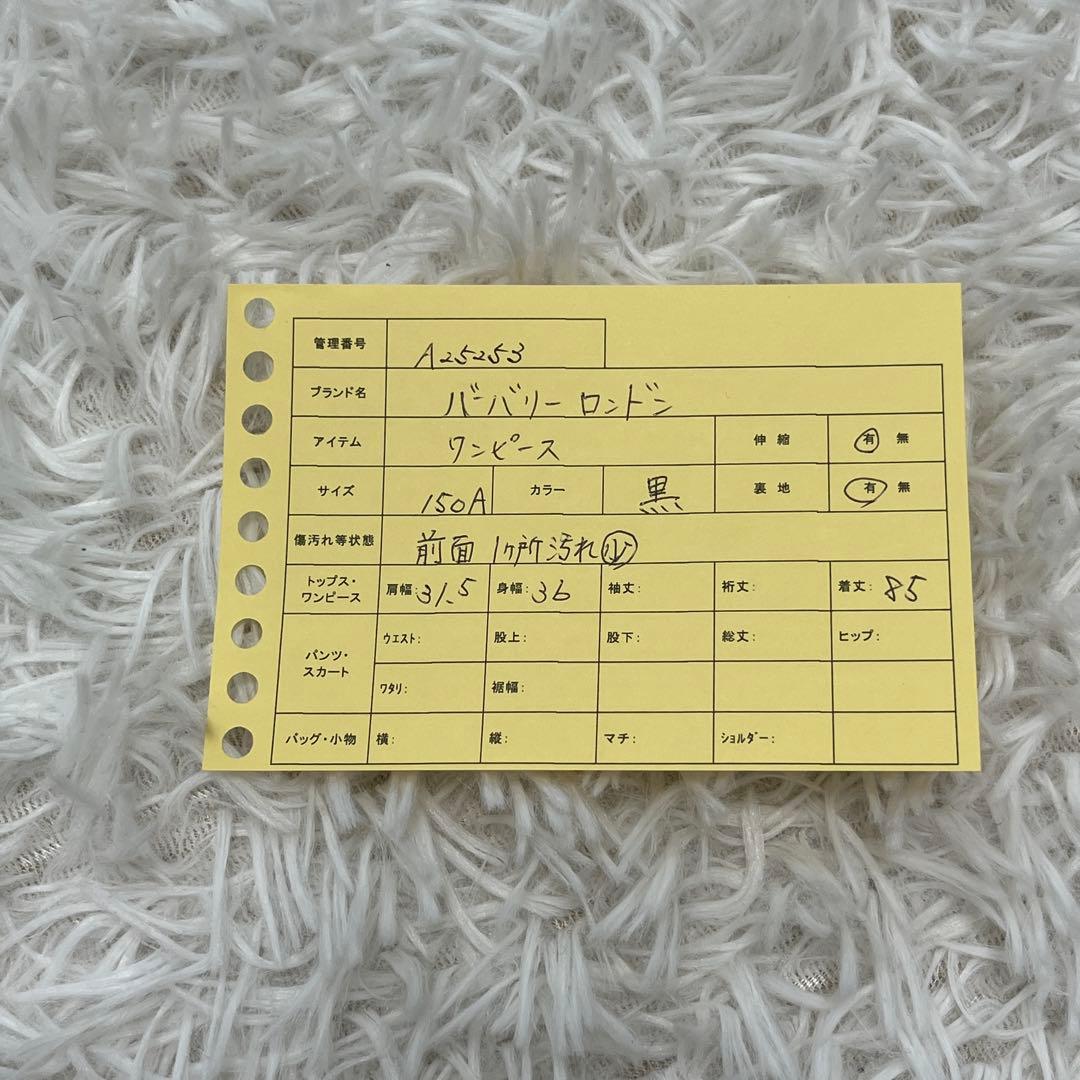 管理番号 A25253
ブランド名 バーバリー ロンドン
アイテム ワンピース 伸縮 有 無
サイズ 150A カラー 黒 裏地 有 無
傷汚れ等状態 前面 1ヶ所汚れ 小
トップス・ワンピース 肩幅:31.5 身幅:36 袖丈: 裄丈: 着丈:85
パンツ・スカート ウエスト: 股上: 股下: 総丈: ヒップ:
ワタリ: 裾幅:
バッグ・小物 横: 縦: マチ: ショルダー: